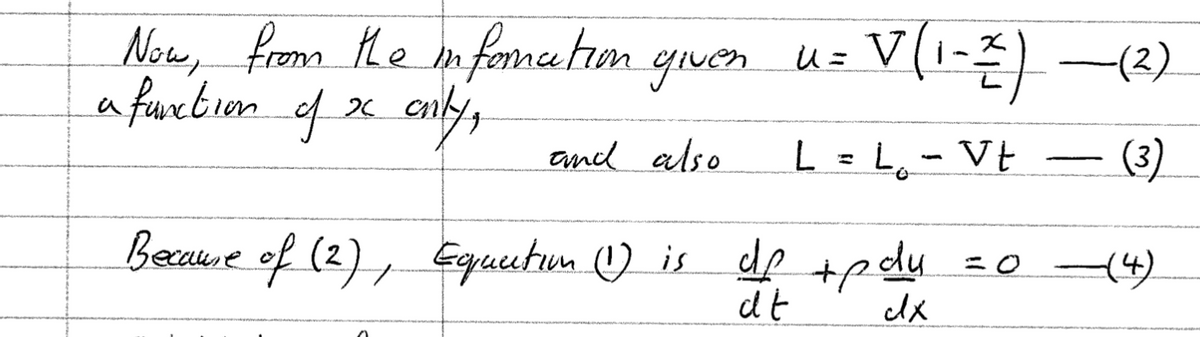 Now, from the information given u = V(1 - x/L) — (2)
a function of x only,
and also L = L₀ - Vt — (3)
Because of (2), Equation (1) is dρ/dt + ρ du/dx = 0 — (4)